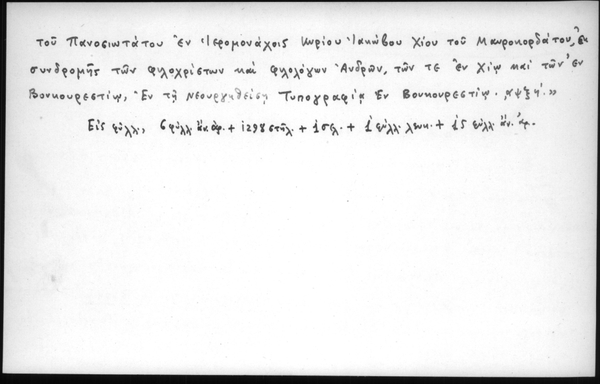 τοῦ Πανοσιωτάτου Ἐν Ἱερομονάχοις Κυρίου Ἰακώβου Χίου τοῦ Μαυροκορδάτου, ἐκ
συνδρομῆς τῶν φιλοχρίστων καὶ φιλολόγων Ἀνδρῶν, τῶν τε ἐν Χίῳ καὶ τῶν ἐν
Βουκουρεστίῳ, Ἐν τῇ Νεουργηθείσῃ Τυπογραφίᾳ Ἐν Βουκουρεστίῳ. ͵αψξή.»
Εἰς φύλλ., 6 φύλλ. ἄν. ἀρ. + 1298 στήλ. + 1 σελ. + 1 φύλλ. λευκ. + 15 φύλλ. ἄν. ἀρ.